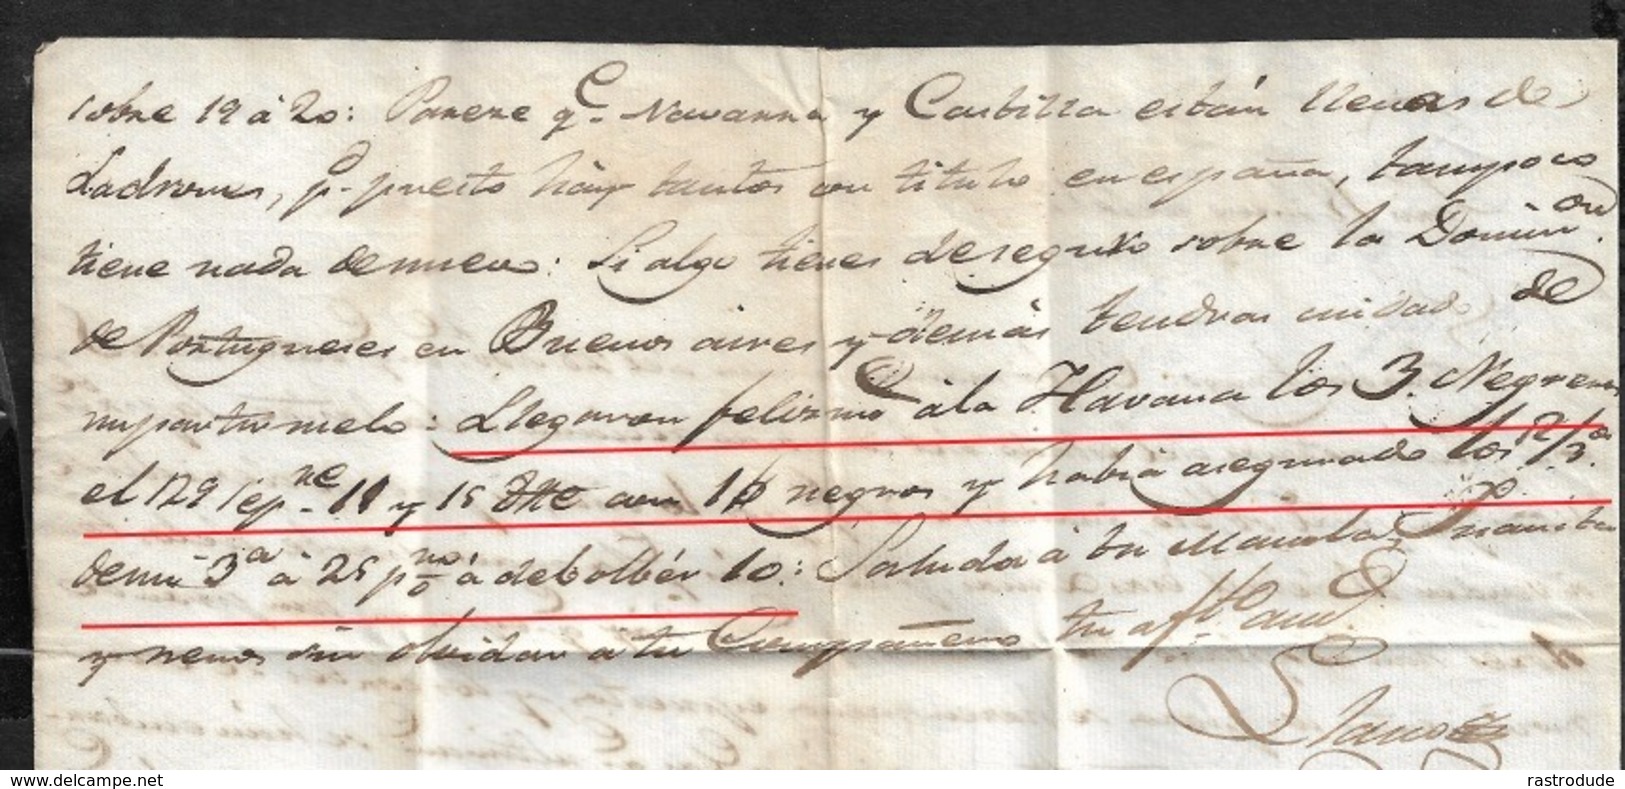 sobre 19 à 20: Parece q.e Navarra y Castilla están llenas de
Ladrones, p.r puesto hay tantos con titulo en españa, tampoco
tiene nada de nuevo: Si algo tienes de seguro sobre la Domin.on
de Portugueses en Buenos aires y demás tendras cuidado de
mpartirmelo: Llegaron felizm.te à la Havana los 3. Negreros
el 129 Sep.ne 11 y 15 con negros y habia asegurado los 2/3.os
de mi 3a à 25 p% à debolbér 10: Saluda à tu Manola,
y nenes sin olvidar a tu Compañero tu aff.to
Llano
www.delcampe.net
rastrodude